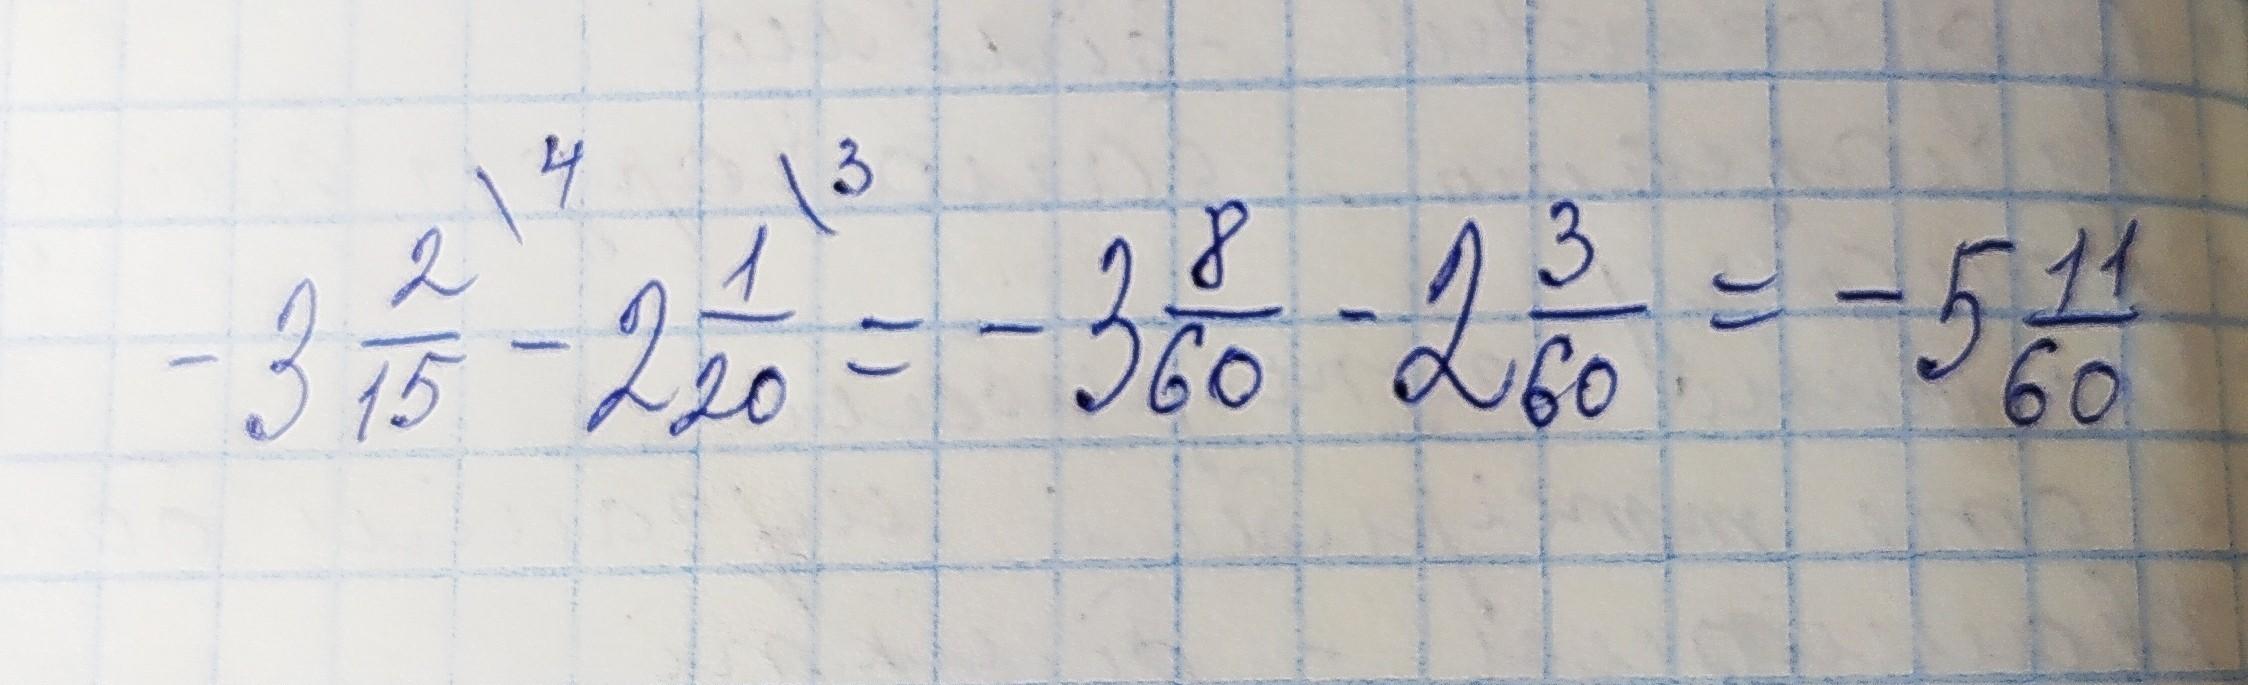 -3 2/15 \4 - 2 1/20 \3 = -3 8/60 - 2 3/60 = -5 11/60